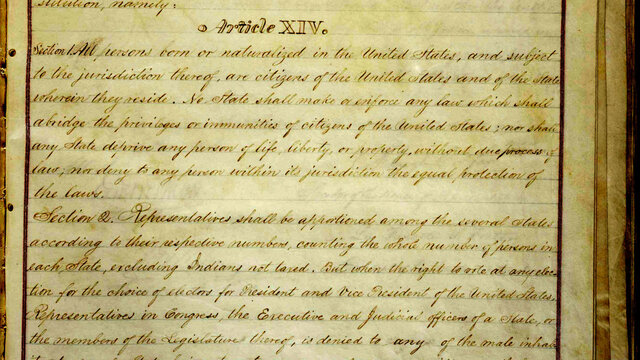 stitution, namely:
Article XIV.
Section 1. All persons born or naturalized in the United States, and subject
to the jurisdiction thereof, are citizens of the United States and of the State
wherein they reside. No State shall make or enforce any law which shall
abridge the privileges or immunities of citizens of the United States; nor shall
any State deprive any person of life, liberty, or property, without due process of
law, nor deny to any person within its jurisdiction the equal protection of
the laws.
Section 2. Representatives shall be apportioned among the several States
according to their respective numbers, counting the whole number of persons in
each State, excluding Indians not taxed. But when the right to vote at any elec
tion for the choice of electors for President and Vice President of the United States,
Representatives in Congress, the Executive and Judicial officers of a State, or
the members of the Legislature thereof, is denied to any of the male inhab